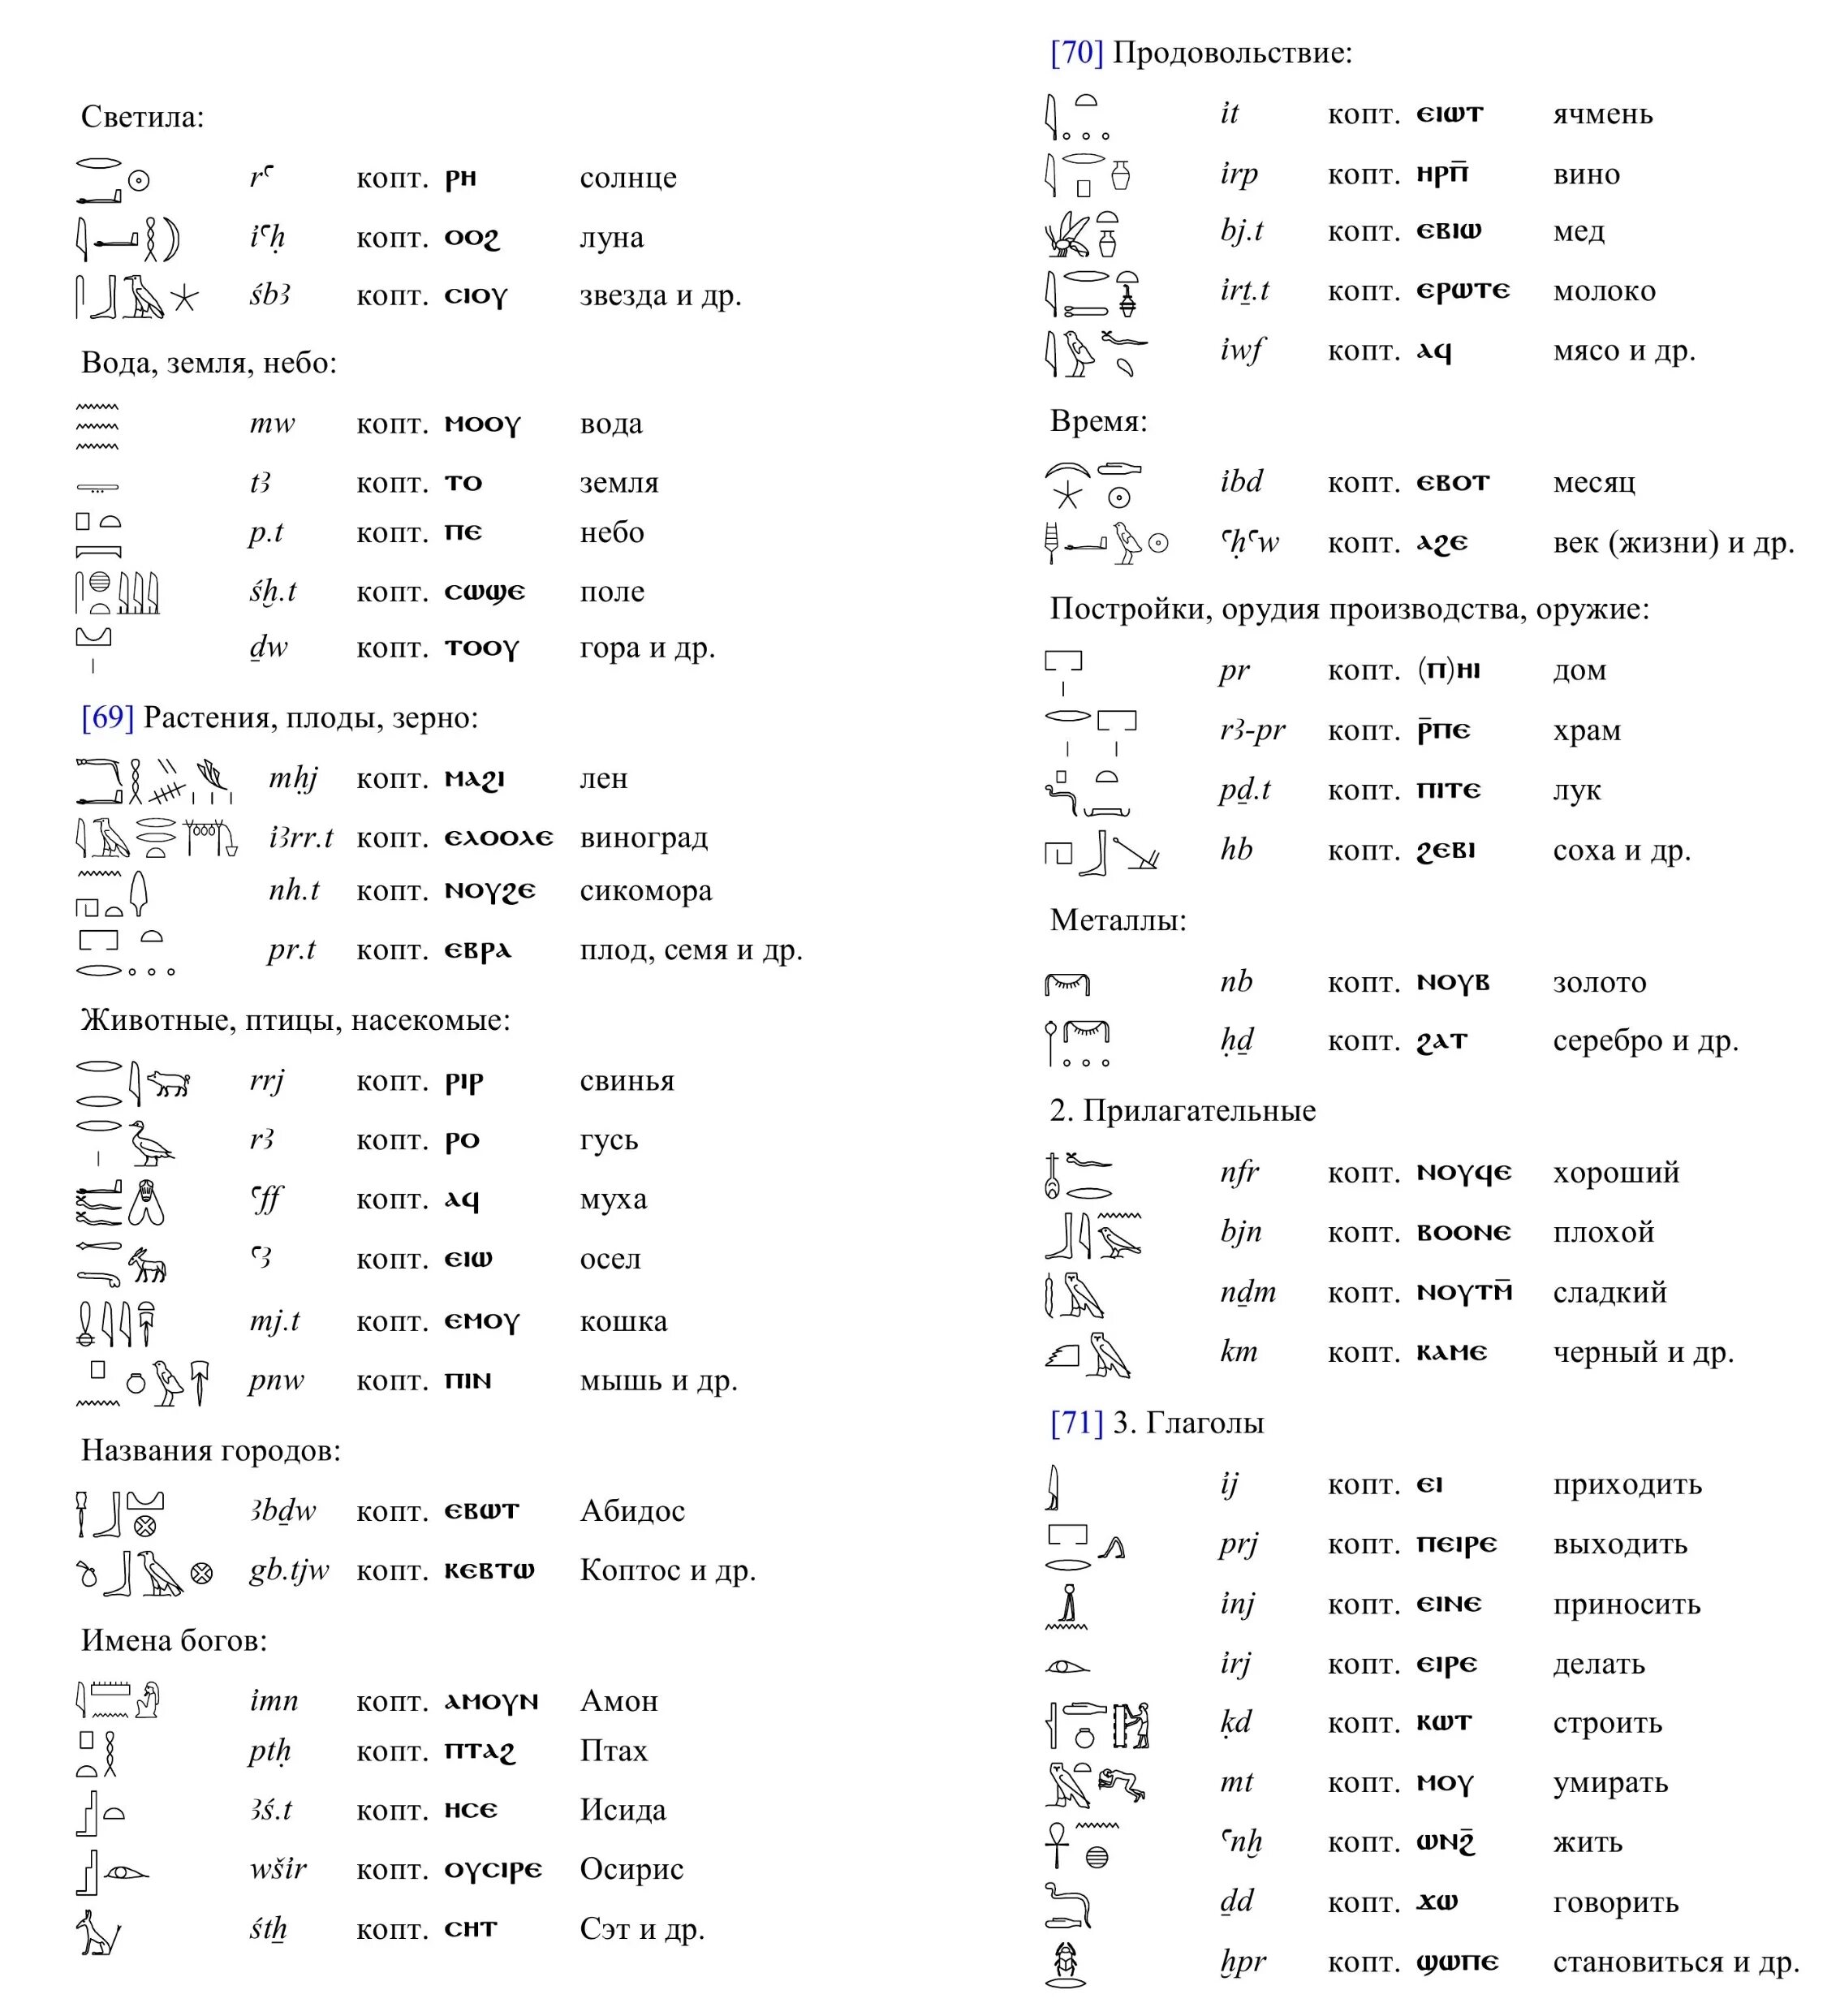 Светила:
rꜥ копт. ⲣⲏ солнце
ỉꜥḥ копт. ⲟⲟϩ луна
śbꜣ копт. ⲥⲓⲟⲩ звезда и др.
Вода, земля, небо:
mw копт. ⲙⲟⲟⲩ вода
tꜣ копт. ⲧⲟ земля
p.t копт. ⲡⲉ небо
śḫ.t копт. ⲥⲱϣⲉ поле
ḏw копт. ⲧⲟⲟⲩ гора и др.
[69] Растения, плоды, зерно:
mḥj копт. ⲙⲁϩⲓ лен
ỉꜣrr.t копт. ⲉⲗⲟⲟⲗⲉ виноград
nh.t копт. ⲛⲟⲩϩⲉ сикомора
pr.t копт. ⲉⲃⲣⲁ плод, семя и др.
Животные, птицы, насекомые:
rrj копт. ⲣⲓⲣ свинья
rꜣ копт. ⲣⲟ гусь
ꜥff копт. ⲁϥ муха
ꜥꜣ копт. ⲉⲓⲱ осел
mj.t копт. ⲉⲙⲟⲩ кошка
pnw копт. ⲡⲓⲛ мышь и др.
Названия городов:
ꜣbḏw копт. ⲉⲃⲱⲧ Абидос
gb.tjw копт. ⲕⲉⲃⲧⲱ Коптос и др.
Имена богов:
ỉmn копт. ⲁⲙⲟⲩⲛ Амон
ptḥ копт. ⲡⲧⲁϩ Птах
ꜣś.t копт. ⲏⲥⲉ Исида
wšỉr копт. ⲟⲩⲥⲓⲣⲉ Осирис
śtẖ копт. ⲥⲏⲧ Сэт и др.
[70] Продовольствие:
ỉt копт. ⲉⲓⲱⲧ ячмень
ỉrp копт. ⲏⲣⲡ̄ вино
bj.t копт. ⲉⲃⲓⲱ мед
ỉrṯ.t копт. ⲉⲣⲱⲧⲉ молоко
ỉwf копт. ⲁϥ мясо и др.
Время:
ỉbd копт. ⲉⲃⲟⲧ месяц
ꜥḥꜥw копт. ⲁϩⲉ век (жизни) и др.
Постройки, орудия производства, оружие:
pr копт. (ⲡ)ⲏⲓ дом
rꜣ-pr копт. ⲣ̄ⲡⲉ храм
pḏ.t копт. ⲡⲓⲧⲉ лук
hb копт. ϩⲉⲃⲓ соха и др.
Металлы:
nb копт. ⲛⲟⲩⲃ золото
ḥḏ копт. ϩⲁⲧ серебро и др.
2. Прилагательные
nfr копт. ⲛⲟⲩϥⲉ хороший
bjn копт. ⲃⲟⲟⲛⲉ плохой
nḏm копт. ⲛⲟⲩⲧⲙ̄ сладкий
km копт. ⲕⲁⲙⲉ черный и др.
[71] 3. Глаголы
ỉj копт. ⲉⲓ приходить
prj копт. ⲡⲉⲓⲣⲉ выходить
ỉnj копт. ⲉⲓⲛⲉ приносить
ỉrj копт. ⲉⲓⲣⲉ делать
ḳd копт. ⲕⲱⲧ строить
mt копт. ⲙⲟⲩ умирать
ꜥnḫ копт. ⲱⲛϩ̄ жить
ḏd копт. ϫⲱ говорить
ḫpr копт. ϣⲱⲡⲉ становиться и др.